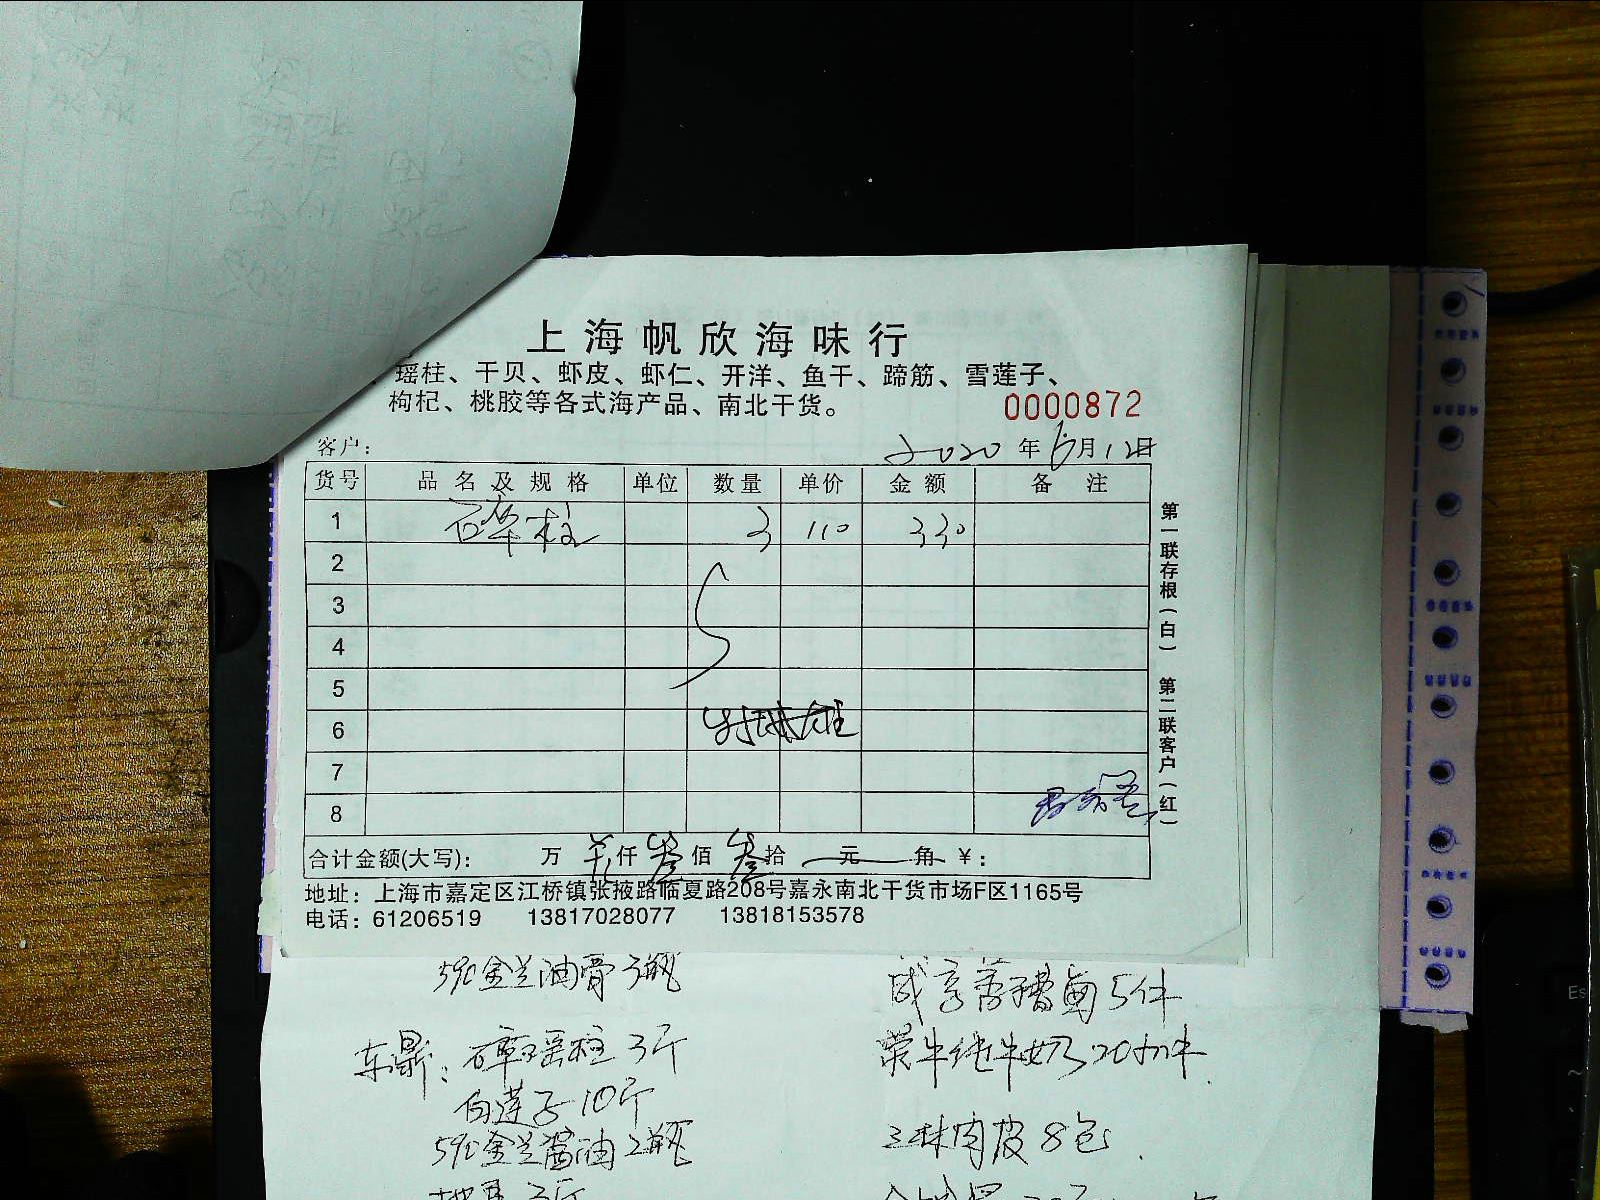 上海帆欣海味行
瑶柱、干贝、虾皮、虾仁、开洋、鱼干、蹄筋、雪莲子、
枸杞、桃胶等各式海产品、南北干货。
0000872
客户：
2020年6月12日
货号 品名及规格 单位 数量 单价 金额 备注
1 石卒柱 3 110 330
2
3
4
5
6
7
8
合计金额(大写)： 万 仟 叁佰 叁拾 元 角 ￥：
第一联存根（白） 第二联客户（红）
地址：上海市嘉定区江桥镇张掖路临夏路208号嘉永南北干货市场F区1165号
电话：61206519 13817028077 13818153578
590金兰油膏3瓶
咸亨香糟卤5件
东鼎：碎瑶柱3斤
蒙牛纯牛奶20
白莲子10斤
590金兰酱油2瓶
三林肉皮8包